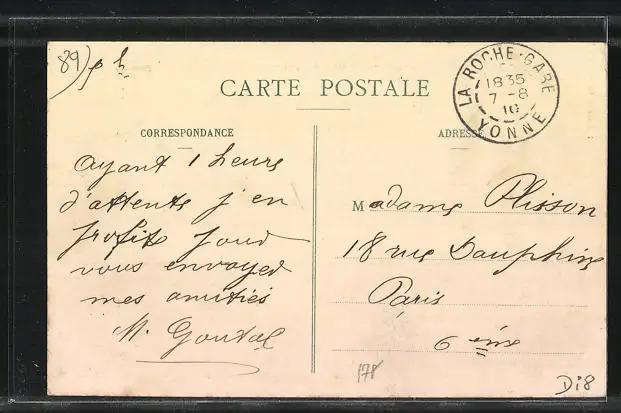 89) ph
CARTE POSTALE
LA ROCHE-GARE
1835
7 -8
10
YONNE
CORRESPONDANCE
ADRESSE
ayant 1 heure
d'attente j'en
profite pour
vous envoyer
mes amitiés
M. Goutal
Madame Plisson
18 rue Dauphine
Paris
6 ème
178
Di8